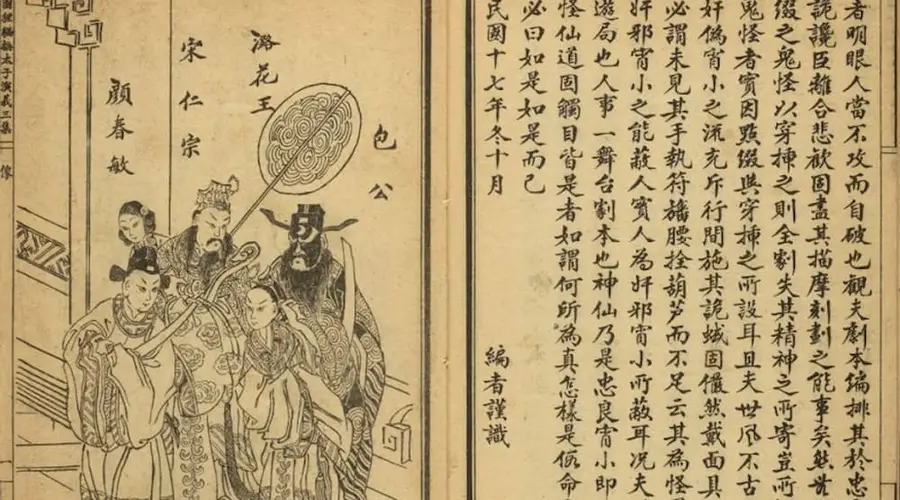 者明眼人當不攻而自破也觀夫劇本編排其於忠
詭讒臣離合悲歡固盡其描摩刻劃之能事矣然世
綴之鬼怪以穿揷之則全劇失其精神之所寄豈所
鬼怪者實因點綴與穿揷之所設耳且夫世風不古
奸僞宵小之流充斥行間施其詭蜮固儼然戴面具
必謂未見其手執符旛腰拴葫芦而不足云其為怪
奸邪宵小之能蔽人實人為奸邪宵小所蔽耳况夫
遊局也人事一舞台劇本也神仙乃是忠良宵小即
怪仙道固觸目皆是者如謂何所為真怎樣是假命
必曰如是如是而已
民國十七年冬十月
編者謹識
包公
潞花王
宋仁宗
顏春敏
圖狸貓換太子演義三集
像